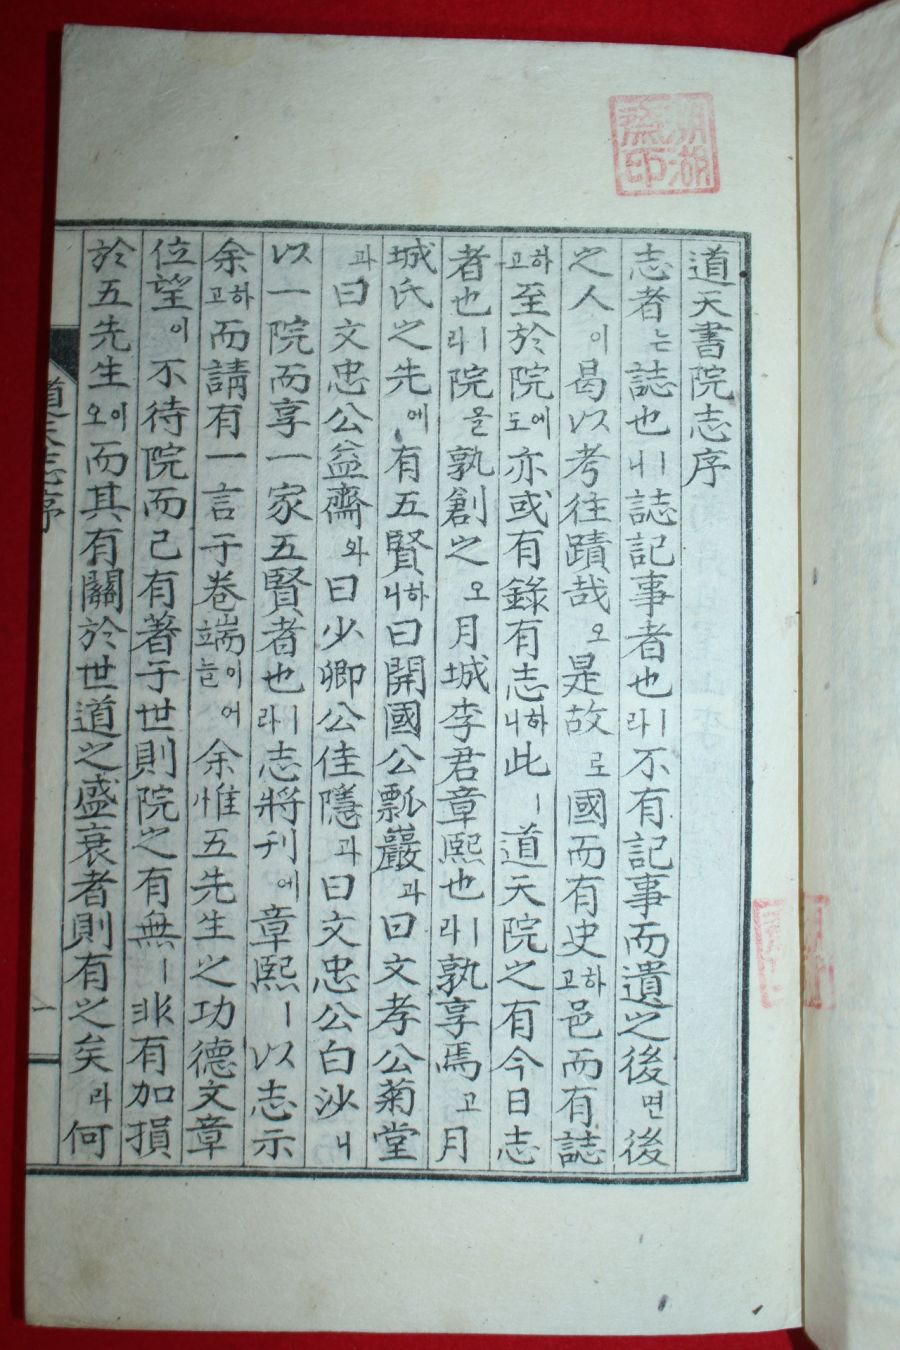 道天書院志序
志者는誌也ㅣ니誌記事者也ㅣ라不有記事而遺之後면後
之人이曷以考往蹟哉오是故로國而有史하고邑而有誌
하고至於院에도亦或有錄有志하니此ㅣ道天院之有今日志
者也ㅣ라院을孰創之오月城李君章熙也ㅣ라孰享焉고月
城氏之先에有五賢하니曰開國公瓢巖과曰文孝公菊堂
과曰文忠公益齋와曰少卿公佳隱과曰文忠公白沙니
以一院而享一家五賢者也ㅣ라志將刊에章熙ㅣ以志示
余하고而請有一言于卷端이어늘余惟五先生之功德文章
位望이不待院而已有著于世則院之有無ㅣ非有加損
於五先生이오而其有關於世道之盛衰者則有之矣라何
道天志序
一
朋湖
齋印